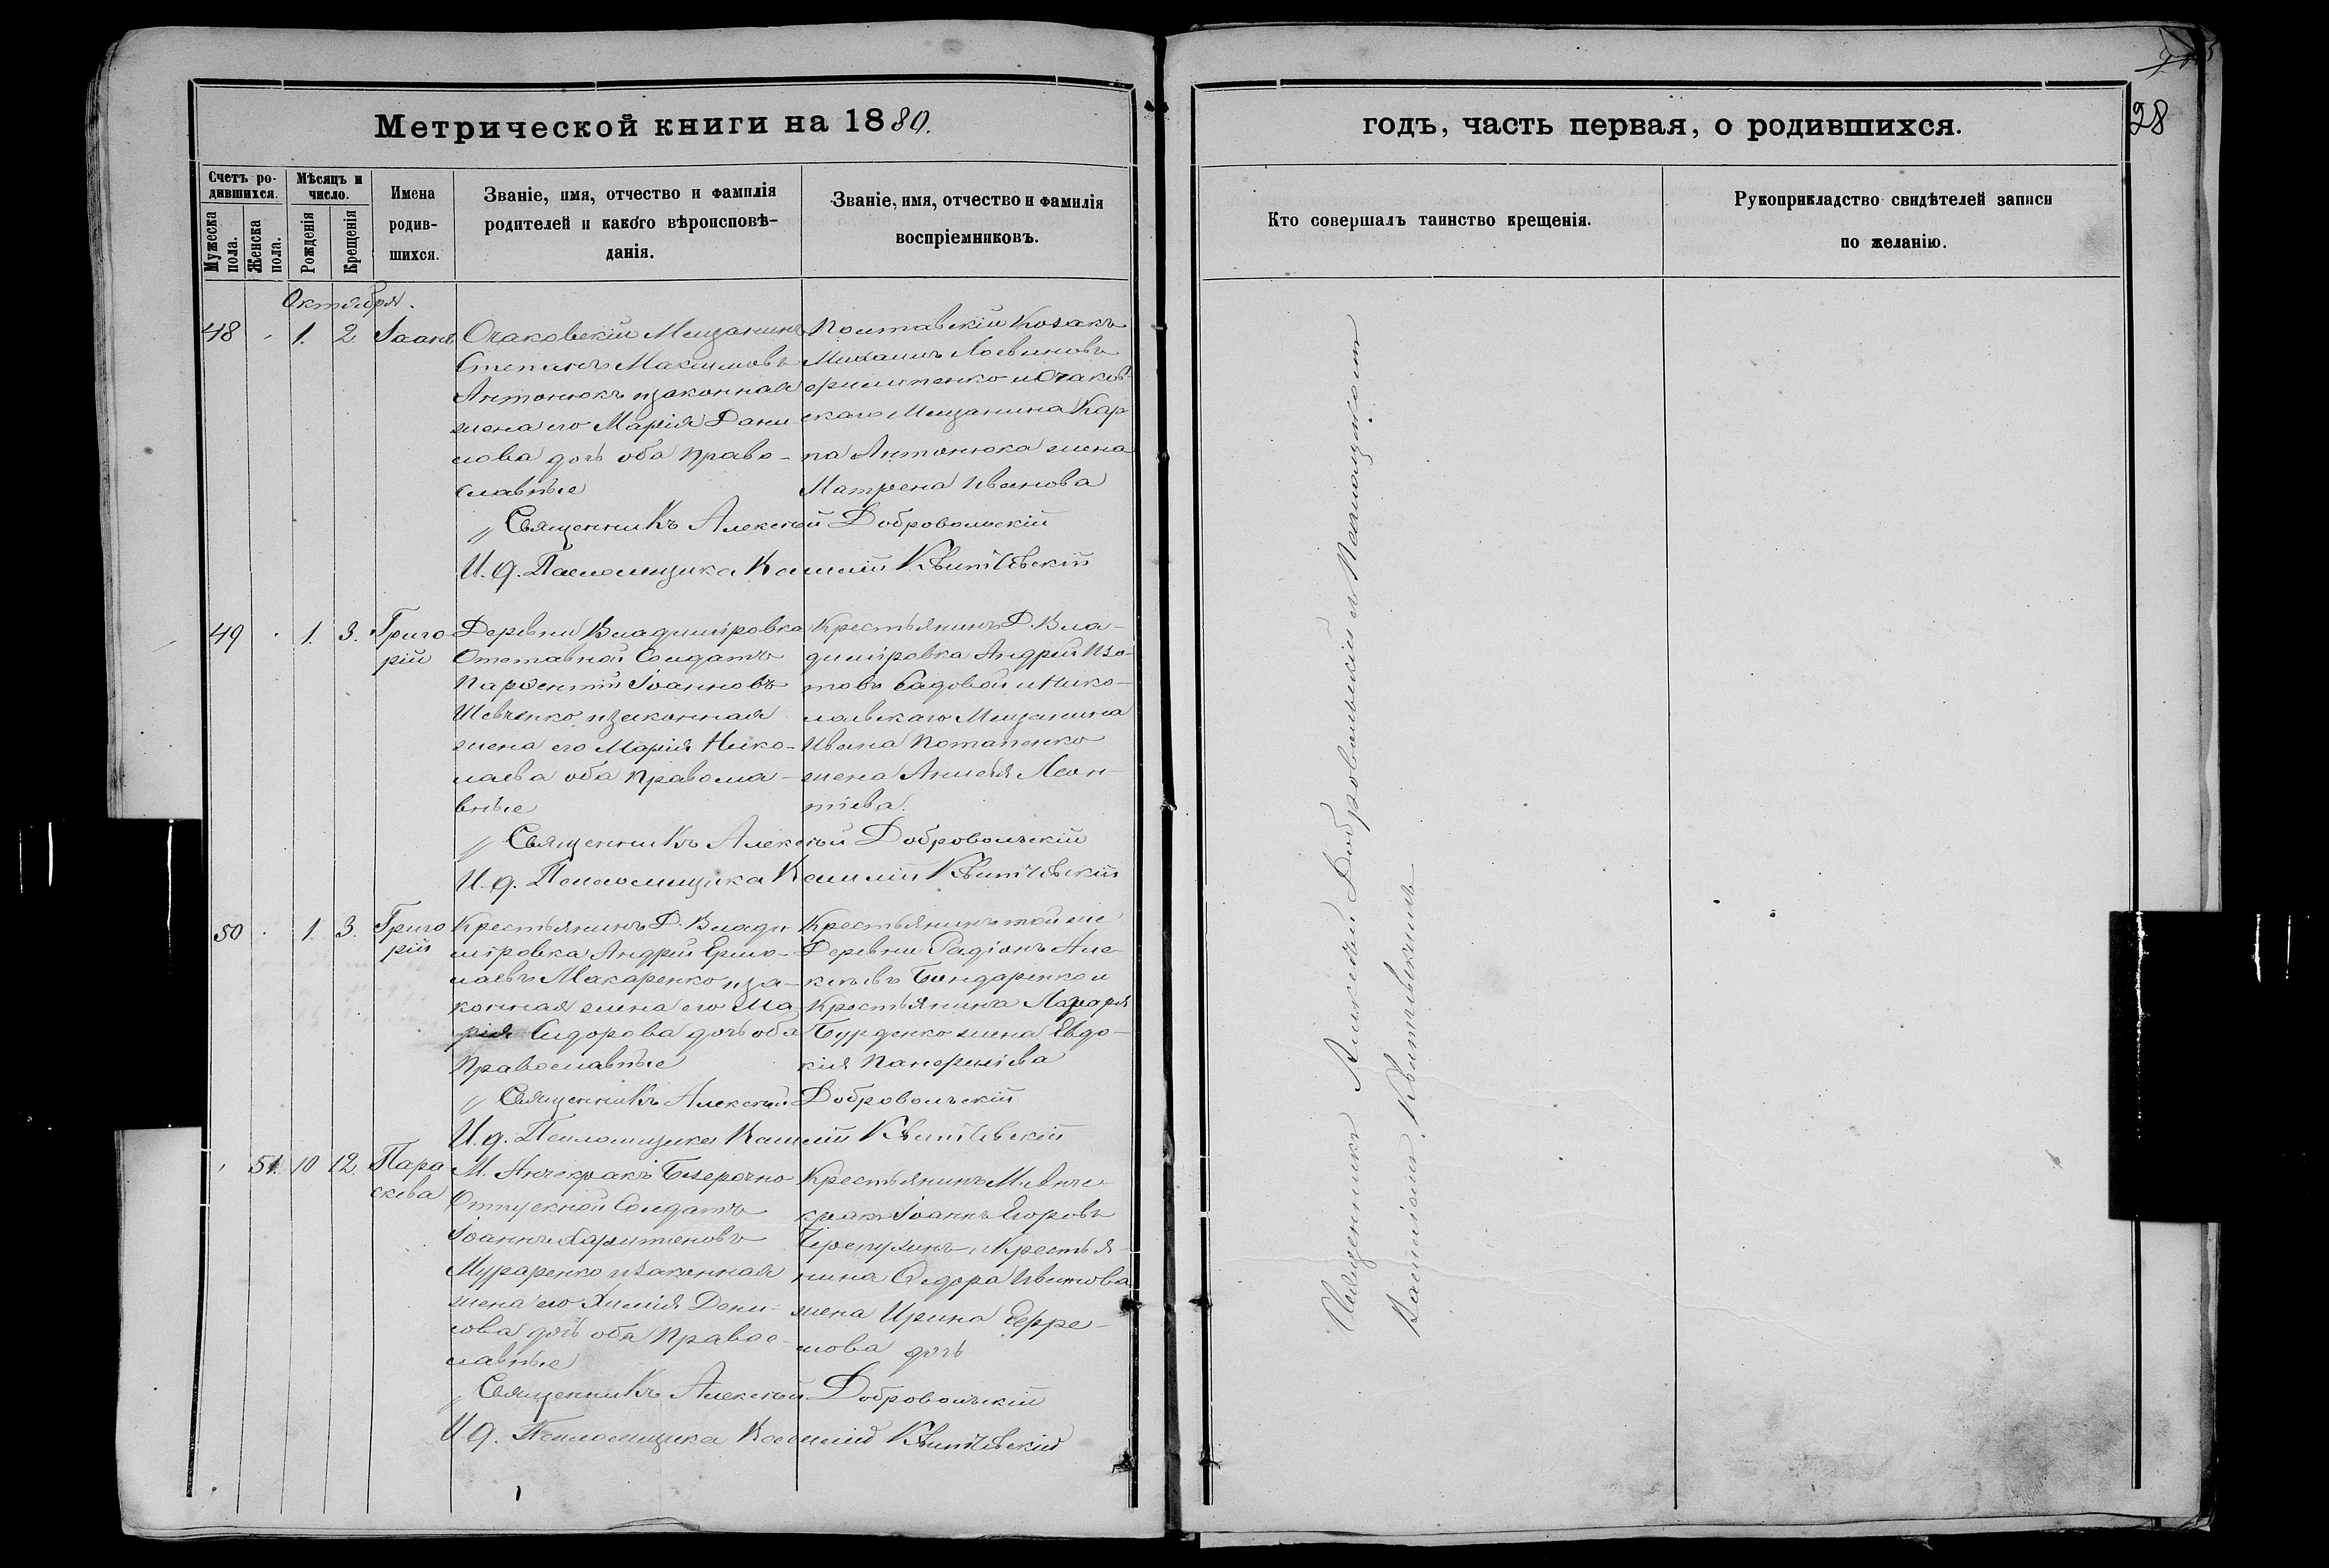 Метрической книги на 1880.
Счетъ ро-
дившихся.
Мужеска
пола.
Женска
пола.
Мѣсяцъ и
число.
Рожденія
Крещенія
Имена
родив-
шихся.
Званіе, имя, отчество и фамилія
родителей и какого вѣроисповѣ-
данія.
Званіе, имя, отчество и фамилія
воспріемниковъ.
Октября.
48 1. 2. Іоаннъ
Очаковскій Мещанинъ
Степанъ Максимовъ
Антонюкъ изаконная
жена его Марія Дани
лова дочь оба право-
славные
Полтавскій Козакъ
Михаилъ Логвиновъ
и Очаков-
скаго Мещанина Кар
па Антонюка жена
Матрена Иванова
Священникъ Алексѣй Добровольскій
И. д. Псаломщика Василій Квитчевскій
49 1. 3. Григо
рій
Деревни Владиміровка
Отставной Солдатъ
Парфентій Іоанновъ
Шевченко изаконная
жена его Марія Нико-
лаева оба Правосла-
вные
Крестьянинъ Д. Вла-
диміровка Андрей Изо-
товъ Садовой и Нико-
лаевскаго Мещанина
Ивана Потапенко
жена Анисія Леон-
тіева
Священникъ Алексѣй Добровольскій
И. д. Псаломщика Василій Квитчевскій
50 1. 3. Григо
рій
Крестьянинъ Д. Влади
міровка Андрей Ермо-
лаевъ Макаренко иза-
конная жена его Ма
рія Сидорова дочь оба
Православные
Крестьянинъ той же
Деревни Радіонъ Але-
ксѣевъ Бондаренко и
Крестьянина Лазаря
Бурденко жена Евдо-
кія
Священникъ Алексѣй Добровольскій
И. д. Псаломщика Василій Квитчевскій
51. 10 12. Пара
скева
М. Анчекракъ Безсрочно
Отпускной Солдатъ
Іоаннъ Харитоновъ
Мураренко изаконная
жена его Дани
лова дочь оба Правос-
лавные
Крестьянинъ М. Анче-
кракъ Іоаннъ Егоровъ
Черепухинъ и Крестья
нина Ѳедора
жена Ирина Ефре-
мова дочь
Священникъ Алексѣй Добровольскій
И. д. Псаломщика Василій Квитчевскій
годъ, часть первая, о родившихся.
28
Кто совершалъ таинство крещенія.
Рукоприкладство свидѣтелей записи
по желанію.
Священникъ Алексѣй Добровольскій съ Псаломщикомъ
Василіемъ Квитчевскимъ